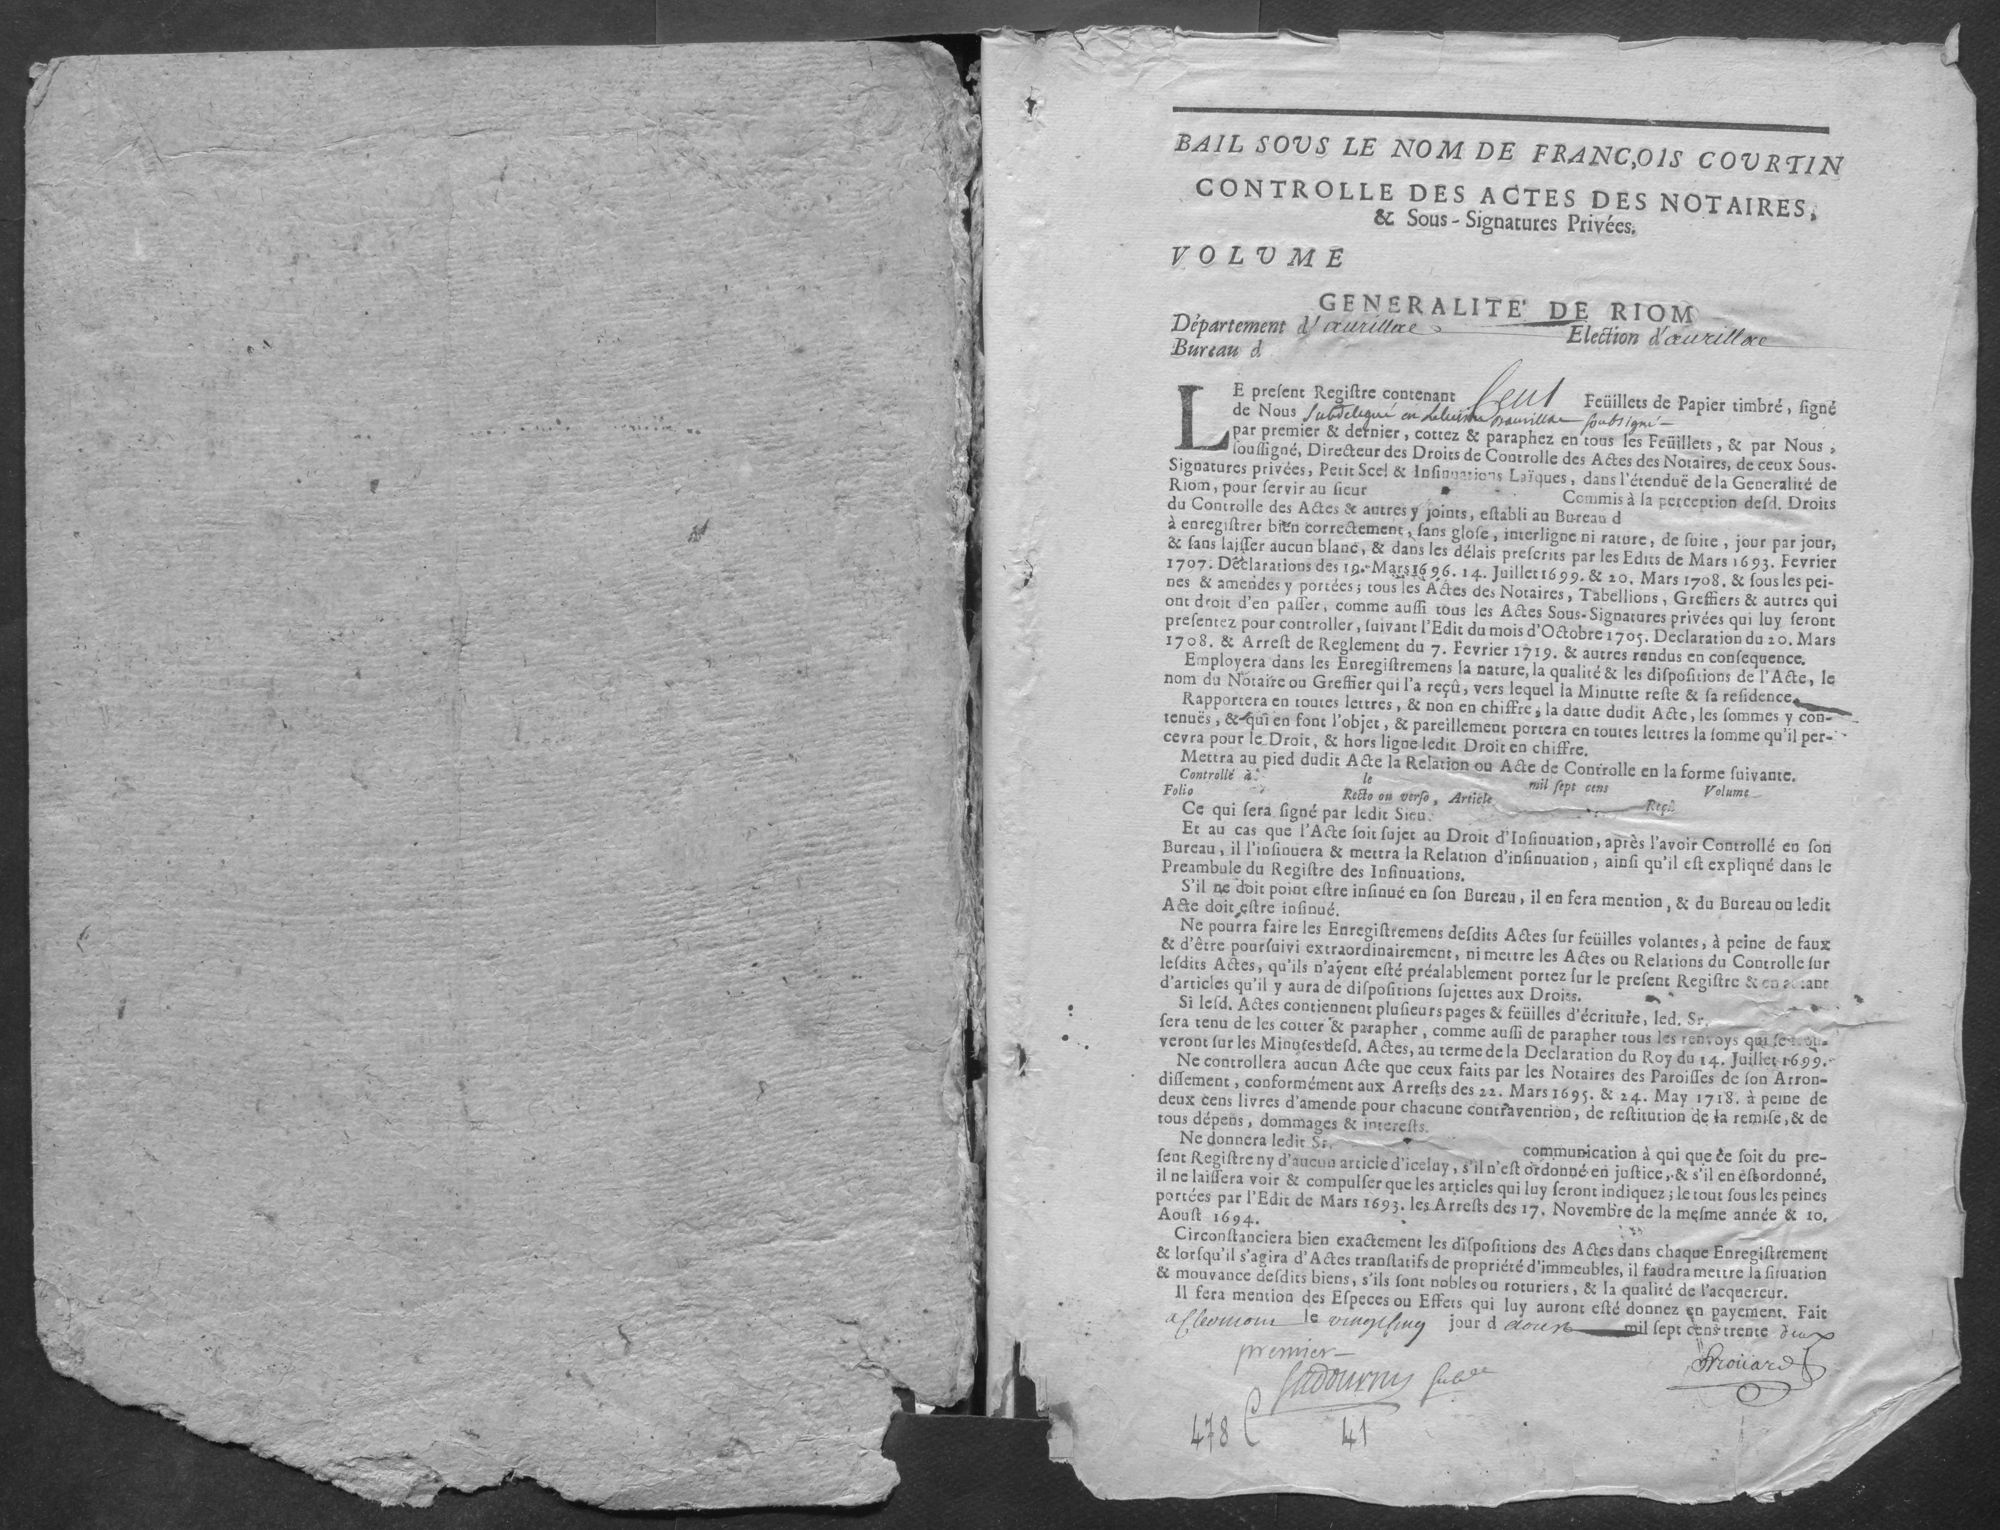 BAIL SOUS LE NOM DE FRANÇOIS COURTIN
CONTROLLE DES ACTES DES NOTAIRES,
& Sous-Signatures Privées.
VOLUME
GENERALITE' DE RIOM
Département d'aurillac Election d'aurillac
Bureau d
LE preſent Regiſtre contenant Cent Feüillets de Papier timbré, ſigné
de Nous Subdelegué en Lelection daurillac ſoubsigné
par premier & dernier, cottez & paraphez en tous les Feüillets, & par Nous,
ſouſſigné, Directeur des Droits de Controlle des Actes des Notaires, de ceux Sous-
Signatures privées, Petit Scel & Inſinuations Laïques, dans l'étenduë de la Generalité de
Riom, pour ſervir au ſieur Commis à la perception deſd. Droits
du Controlle des Actes & autres y joints, eſtabli au Bureau d
à enregiſtrer bien correctement, ſans gloſe, interligne ni rature, de ſuite, jour par jour,
& ſans laiſſer aucun blanc, & dans les délais preſcrits par les Edits de Mars 1693. Fevrier
1707. Déclarations des 19. Mars 1696. 14. Juillet 1699. & 20. Mars 1708. & ſous les pei-
nes & amendes y portées; tous les Actes des Notaires, Tabellions, Greffiers & autres qui
ont droit d'en paſſer, comme auſſi tous les Actes Sous-Signatures privées qui luy ſeront
preſentez pour controller, ſuivant l'Edit du mois d'Octobre 1705. Declaration du 20. Mars
1708. & Arreſt de Reglement du 7. Fevrier 1719. & autres rendus en conſequence.
Employera dans les Enregiſtremens la nature, la qualité & les diſpoſitions de l'Acte, le
nom du Notaire ou Greffier qui l'a reçû, vers lequel la Minutte reſte & ſa reſidence.
Rapportera en toutes lettres, & non en chiffre, la datte dudit Acte, les ſommes y con-
tenuës, & qui en font l'objet, & pareillement portera en toutes lettres la ſomme qu'il per-
cevra pour le Droit, & hors ligne ledit Droit en chiffre.
Mettra au pied dudit Acte la Relation ou Acte de Controlle en la forme ſuivante.
Controllé à le mil ſept cens Volume
Folio Recto ou verſo, Article Reçû
Ce qui ſera ſigné par ledit Sieur
Et au cas que l'Acte ſoit ſujet au Droit d'Inſinuation, après l'avoir Controllé en ſon
Bureau, il l'inſinuera & mettra la Relation d'inſinuation, ainſi qu'il eſt expligné dans le
Preambule du Regiſtre des Inſinuations.
S'il ne doit point eſtre inſinué en ſon Bureau, il en fera mention, & du Bureau ou ledit
Acte doit eſtre inſinué.
Ne pourra faire les Enregiſtremens deſdits Actes ſur feüilles volantes, à peine de faux
& d'être pourſuivi extraordinairement, ni mettre les Actes ou Relations du Controlle ſur
leſdits Actes, qu'ils n'ayent eſté préalablement portez ſur le preſent Regiſtre & en autant
d'articles qu'il y aura de diſpoſitions ſujettes aux Droits.
Si leſd. Actes contiennent pluſieurs pages & feüilles d'écriture, led. Sr.
ſera tenu de les cotter & parapher, comme auſſi de parapher tous les renvoys qui ſe trou-
veront ſur les Minutes deſd. Actes, au terme de la Declaration du Roy du 14. Juillet 1699.
Ne controllera aucun Acte que ceux faits par les Notaires des Paroiſſes de ſon Arron-
diſſement, conformément aux Arreſts des 22. Mars 1695. & 24. May 1718. à peine de
deux cens livres d'amende pour chacune contravention, de reſtitution de la remiſe, & de
tous dépens, dommages & intereſts.
Ne donnera ledit Sr. communication à qui que ce ſoit du pre-
ſent Regiſtre ny d'aucun article d'iceluy, s'il n'eſt ordonné en juſtice, & s'il en eſt ordonné,
il ne laiſſera voir & compulſer que les articles qui luy ſeront indiquez; le tout ſous les peines
portées par l'Edit de Mars 1693. les Arreſts des 17. Novembre de la meſme année & 10.
Aouſt 1694.
Circonſtanciera bien exactement les diſpoſitions des Actes dans chaque Enregiſtrement
& lorſqu'il s'agira d'Actes tranſlatifs de propriété d'immeubles, il faudra mettre la ſituation
& mouvance deſdits biens, s'ils ſont nobles ou roturiers, & la qualité de l'acquereur.
Il fera mention des Eſpeces ou Effets qui luy auront eſté donnez en payement. Fait
a Clermont le vingt cinq jour d aoust mil ſept cens trente deux
premier
Sadourny Subde
Brouard
478 41